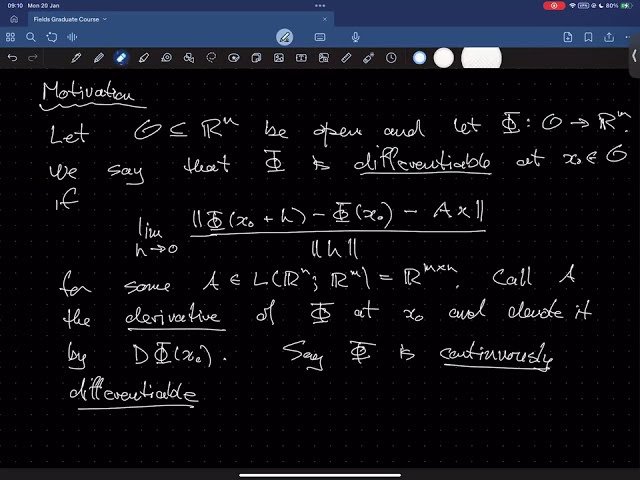 09:10 Mon 20 Jan
80%
Fields Graduate Course
Motivation
Let O ⊆ ℝⁿ be open and let Φ : O → ℝᵐ.
we say that Φ is differentiable at x₀ ∈ O
if
lim h→0 ‖Φ(x₀ + h) − Φ(x₀) − Ax‖ / ‖h‖
for some A ∈ L(ℝⁿ; ℝᵐ) = ℝᵐˣⁿ. Call A
the derivative of Φ at x₀ and denote it
by DΦ(x₀). Say Φ is continuously
differentiable